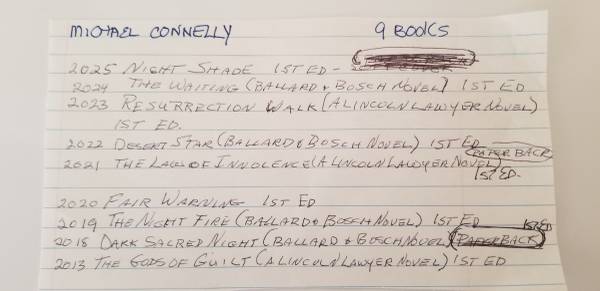 MICHAEL CONNELLY 9 BOOKS
2025 NIGHT SHADE 1ST ED -
2024 THE WAITING (BALLARD & BOSCH NOVEL) 1ST ED
2023 RESURRECTION WALK (A LINCOLN LAWYER NOVEL)
1ST ED.
2022 DESERT STAR (BALLARD & BOSCH NOVEL) 1ST ED
2021 THE LAW OF INNOCENCE (A LINCOLN LAWYER NOVEL) PAPER BACK
1ST ED.
2020 FAIR WARNING 1ST ED
2019 THE NIGHT FIRE (BALLARD & BOSCH NOVEL) 1ST ED
2018 DARK SACRED NIGHT (BALLARD & BOSCH NOVEL) PAPERBACK 1ST ED
2013 THE GODS OF GUILT (A LINCOLN LAWYER NOVEL) 1ST ED